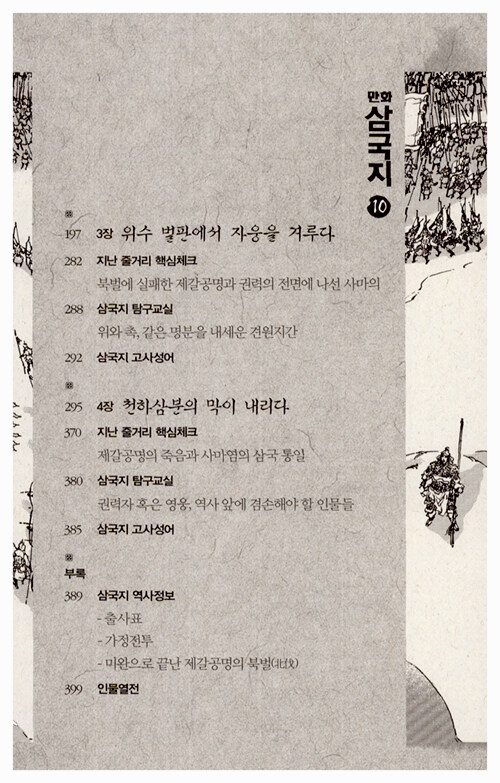 만화
삼국지
10
197 3장 위수 벌판에서 자웅을 겨루다
282 지난 줄거리 핵심체크
북벌에 실패한 제갈공명과 권력의 전면에 나선 사마의
288 삼국지 탐구교실
위와 촉, 같은 명분을 내세운 견원지간
292 삼국지 고사성어
295 4장 천하삼분의 막이 내리다
370 지난 줄거리 핵심체크
제갈공명의 죽음과 사마염의 삼국 통일
380 삼국지 탐구교실
권력자 혹은 영웅, 역사 앞에 겸손해야 할 인물들
385 삼국지 고사성어
부록
389 삼국지 역사정보
- 출사표
- 가정전투
- 미완으로 끝난 제갈공명의 북벌(北伐)
399 인물열전